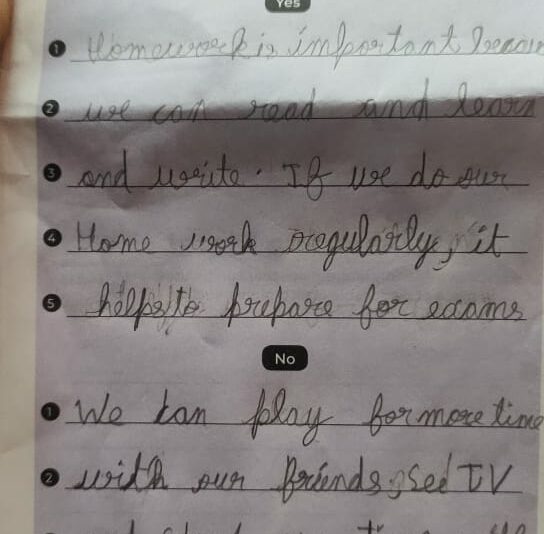 Yes
1 Homework is important
2 we can read and learn
3 and write. If we do our
4 Home work regularly, it
5 helps to prepare for exams
No
1 We can play for more time
2 with our friends, see TV